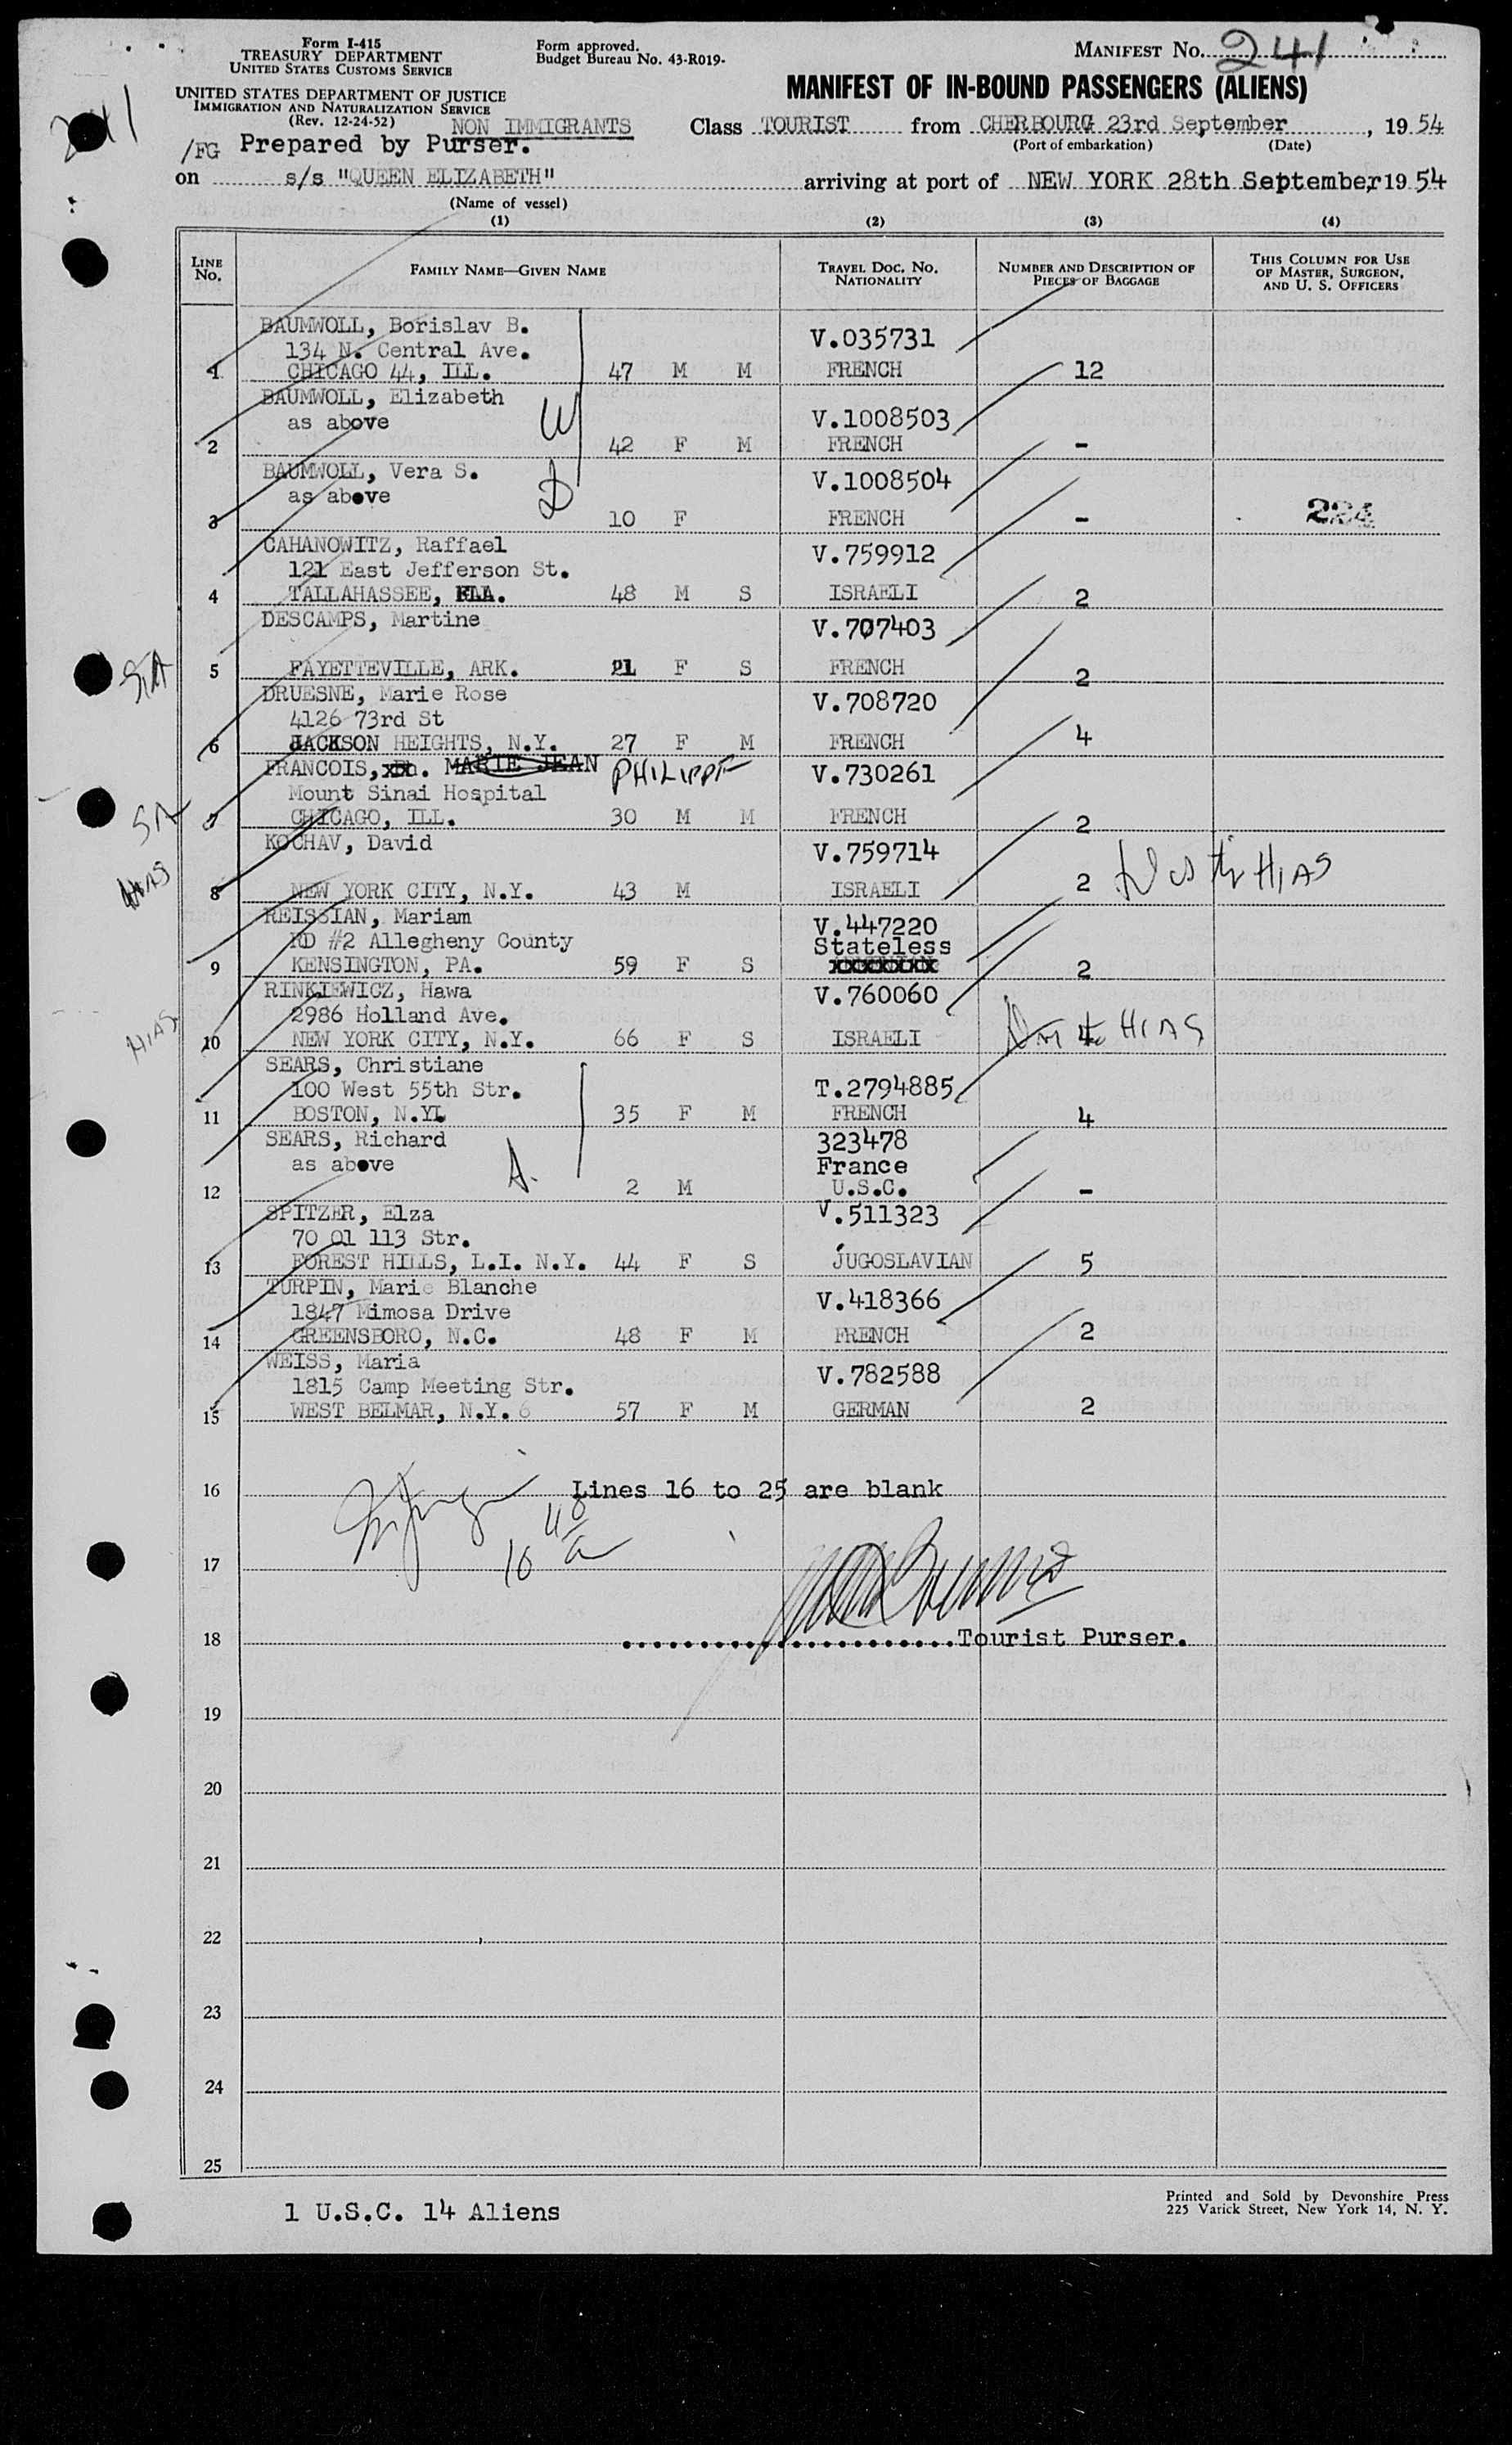 Form I-415
TREASURY DEPARTMENT
UNITED STATES CUSTOMS SERVICE
UNITED STATES DEPARTMENT OF JUSTICE
IMMIGRATION AND NATURALIZATION SERVICE
(Rev. 12-24-52)
Form approved.
Budget Bureau No. 43-R019-
MANIFEST No. 241
MANIFEST OF IN-BOUND PASSENGERS (ALIENS)
241
NON IMMIGRANTS Class TOURIST from CHERBOURG 23rd September, 19 54
(Port of embarkation) (Date)
/FG Prepared by Purser.
on s/s "QUEEN ELIZABETH" arriving at port of NEW YORK 28th September, 19 54
(Name of vessel)
(1) (2) (3) (4)
LINE No. FAMILY NAME—GIVEN NAME TRAVEL DOC. NO. NATIONALITY NUMBER AND DESCRIPTION OF PIECES OF BAGGAGE THIS COLUMN FOR USE OF MASTER, SURGEON, AND U. S. OFFICERS
BAUMWOLL, Borislav B. V.035731
134 N. Central Ave.
1 CHICAGO 44, ILL. 47 M M FRENCH 12
BAUMWOLL, Elizabeth
as above W V.1008503
2 42 F M FRENCH -
BAUMWOLL, Vera S. V.1008504
as above D
3 10 F FRENCH - 224
CAHANOWITZ, Raffael V.759912
121 East Jefferson St.
4 TALLAHASSEE, FLA. 48 M S ISRAELI 2
DESCAMPS, Martine V.707403
SA 5 FAYETTEVILLE, ARK. 21 F S FRENCH 2
DRUESNE, Marie Rose V.708720
4126 73rd St
6 JACKSON HEIGHTS, N.Y. 27 F M FRENCH 4
FRANCOIS, xxx. MARIE JEAN PHILIPPE V.730261
Mount Sinai Hospital
SA 7 CHICAGO, ILL. 30 M M FRENCH 2
KOCHAV, David V.759714
HIAS 8 NEW YORK CITY, N.Y. 43 M ISRAELI 2 HIAS
REISSIAN, Mariam V.447220
RD #2 Allegheny County Stateless
9 KENSINGTON, PA. 59 F S xxxxxxx 2
RINKIEWICZ, Hawa V.760060
2986 Holland Ave.
HIAS 10 NEW YORK CITY, N.Y. 66 F S ISRAELI 4 HIAS
SEARS, Christiane
100 West 55th Str. T.2794885
11 BOSTON, N.Y. 35 F M FRENCH 4
SEARS, Richard 323478
as above A. France
12 2 M U.S.C. -
SPITZER, Elza V.511323
70 01 113 Str.
13 FOREST HILLS, L.I. N.Y. 44 F S JUGOSLAVIAN 5
TURPIN, Marie Blanche
1847 Mimosa Drive V.418366
14 GREENSBORO, N.C. 48 F M FRENCH 2
WEISS, Maria V.782588
1815 Camp Meeting Str.
15 WEST BELMAR, N.Y. 6 57 F M GERMAN 2
16 Lines 16 to 25 are blank
17
18 ......................Tourist Purser.
19
20
21
22
23
24
25
1 U.S.C. 14 Aliens
Printed and Sold by Devonshire Press
225 Varick Street, New York 14, N. Y.